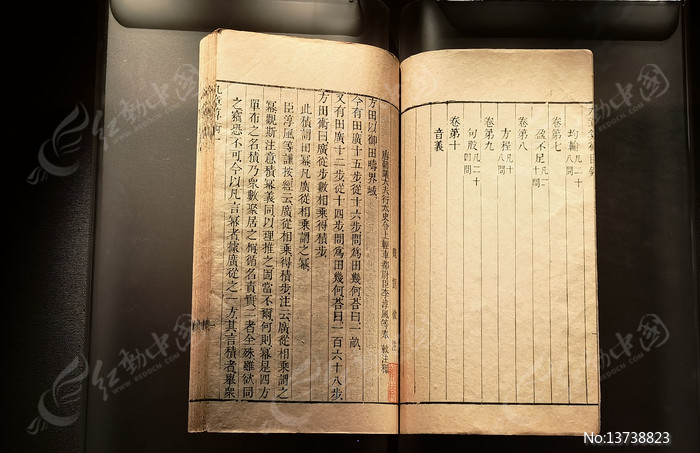 均輸凡二十八問
卷第七
盈不足凡二十問
卷第八
方程凡十八問
卷第九
句股凡二十四問
卷第十
音義
魏劉徽注
唐朝議大夫行太史令上輕車都尉臣李淳風等奉 敕注釋
方田以御田疇界域
今有田廣十五步從十六步問爲田幾何荅曰一畝
又有田廣十二步從十四步問爲田幾何荅曰一百六十八步
方田術曰廣從步數相乘得積步
此積謂田冪凡廣從相乘謂之冪
臣淳風等謹按經云廣從相乘得積步注云廣從相乘謂之
冪觀斯注意積冪義同以理推之固當不爾何則冪是四方
單布之名積乃衆數聚居之稱循名責實二者全殊雖欲同
之竊恐不可今以凡言冪者據廣從之一方其言積者舉衆
红动中国
WWW.REDOCN.COM
红动中国
WWW.REDOCN.COM
红动中国
WWW.REDOCN.COM
红动中国
WWW.REDOCN.COM
红动中国
WWW.REDOCN.COM
红动中国
WWW.REDOCN.COM
No:13738823